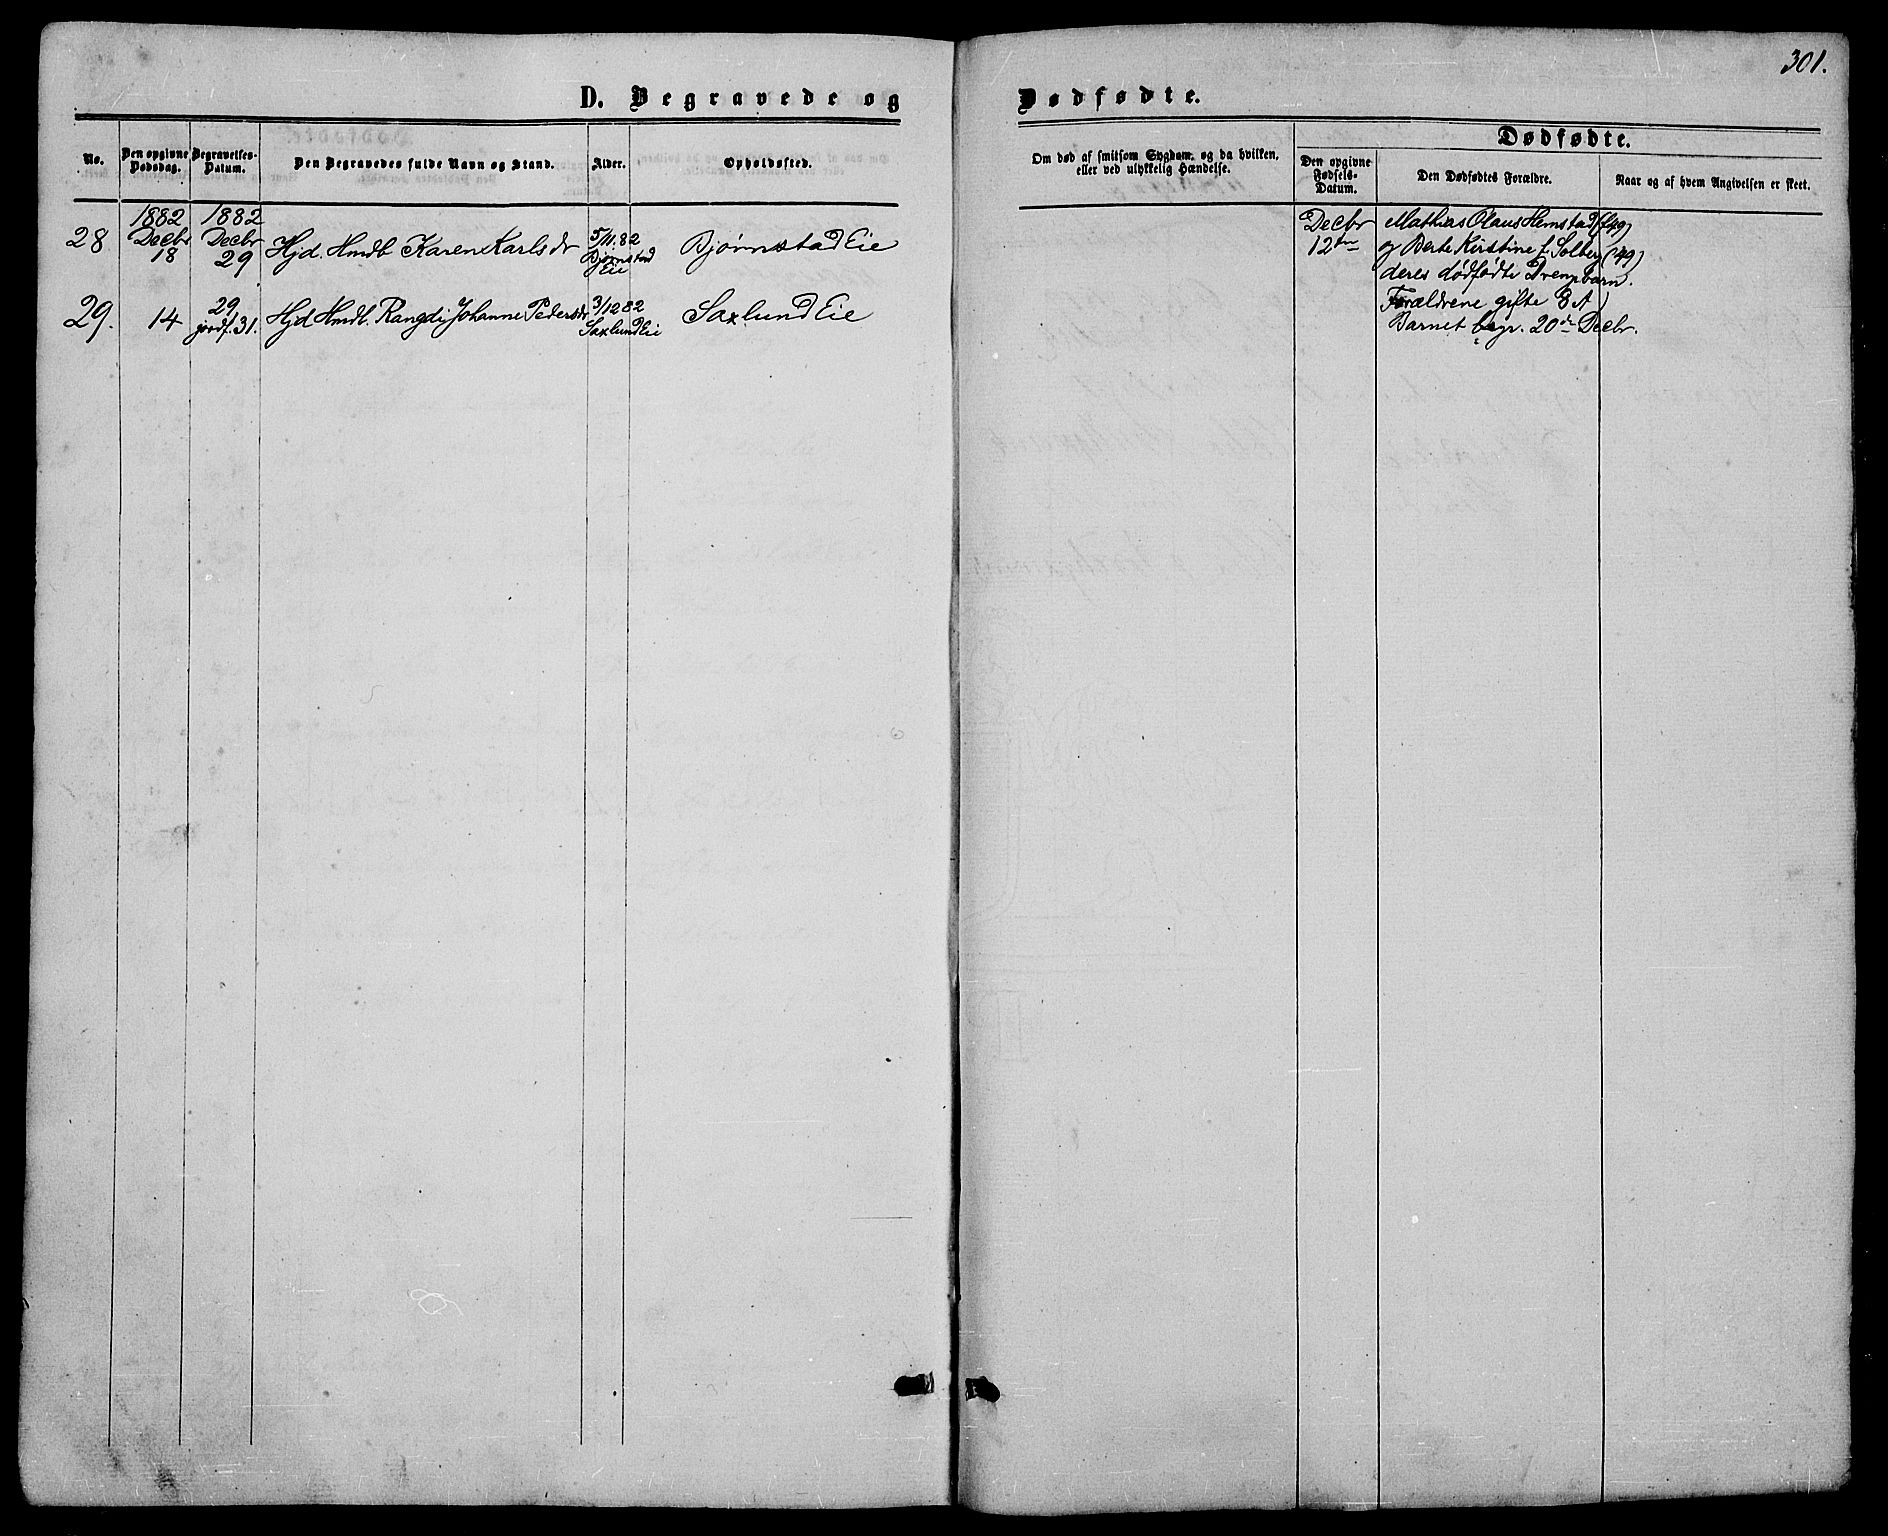 301.
D. Begravede og
Dødfødte.
No.
Den opgivne Dødsdag.
Begravelses-Datum.
Den Begravedes fulde Navn og Stand.
Alder.
Opholdssted.
Om død af smitsom Sygdom, og da hvilken,
eller ved ulykkelig Hændelse.
Dødfødte.
Den opgivne Fødsels-Datum.
Den Dødfødtes Forældre.
Naar og af hvem Angivelsen er skeet.
28
1882
Decbr
18
1882
Decbr
29
Hjd. Hmdb Karen Karlsdr
5/11.82
Bjørnstad
Eie
Bjørnstad Eie
29.
14
29/
jordf. 31.
Hjd Hmdb. Rangdi Johanne Pedersdr
3/12 82
Saxlund Eie
Saxlund Eie
Decbr
12te
Mathias Olaus Hemstad (f 49)
og Berte Kirstine f. Solberg (49)
deres dødfødte Drengebarn.
Forældrene gifte 8 A)
Barnet begr. 20de Decbr.